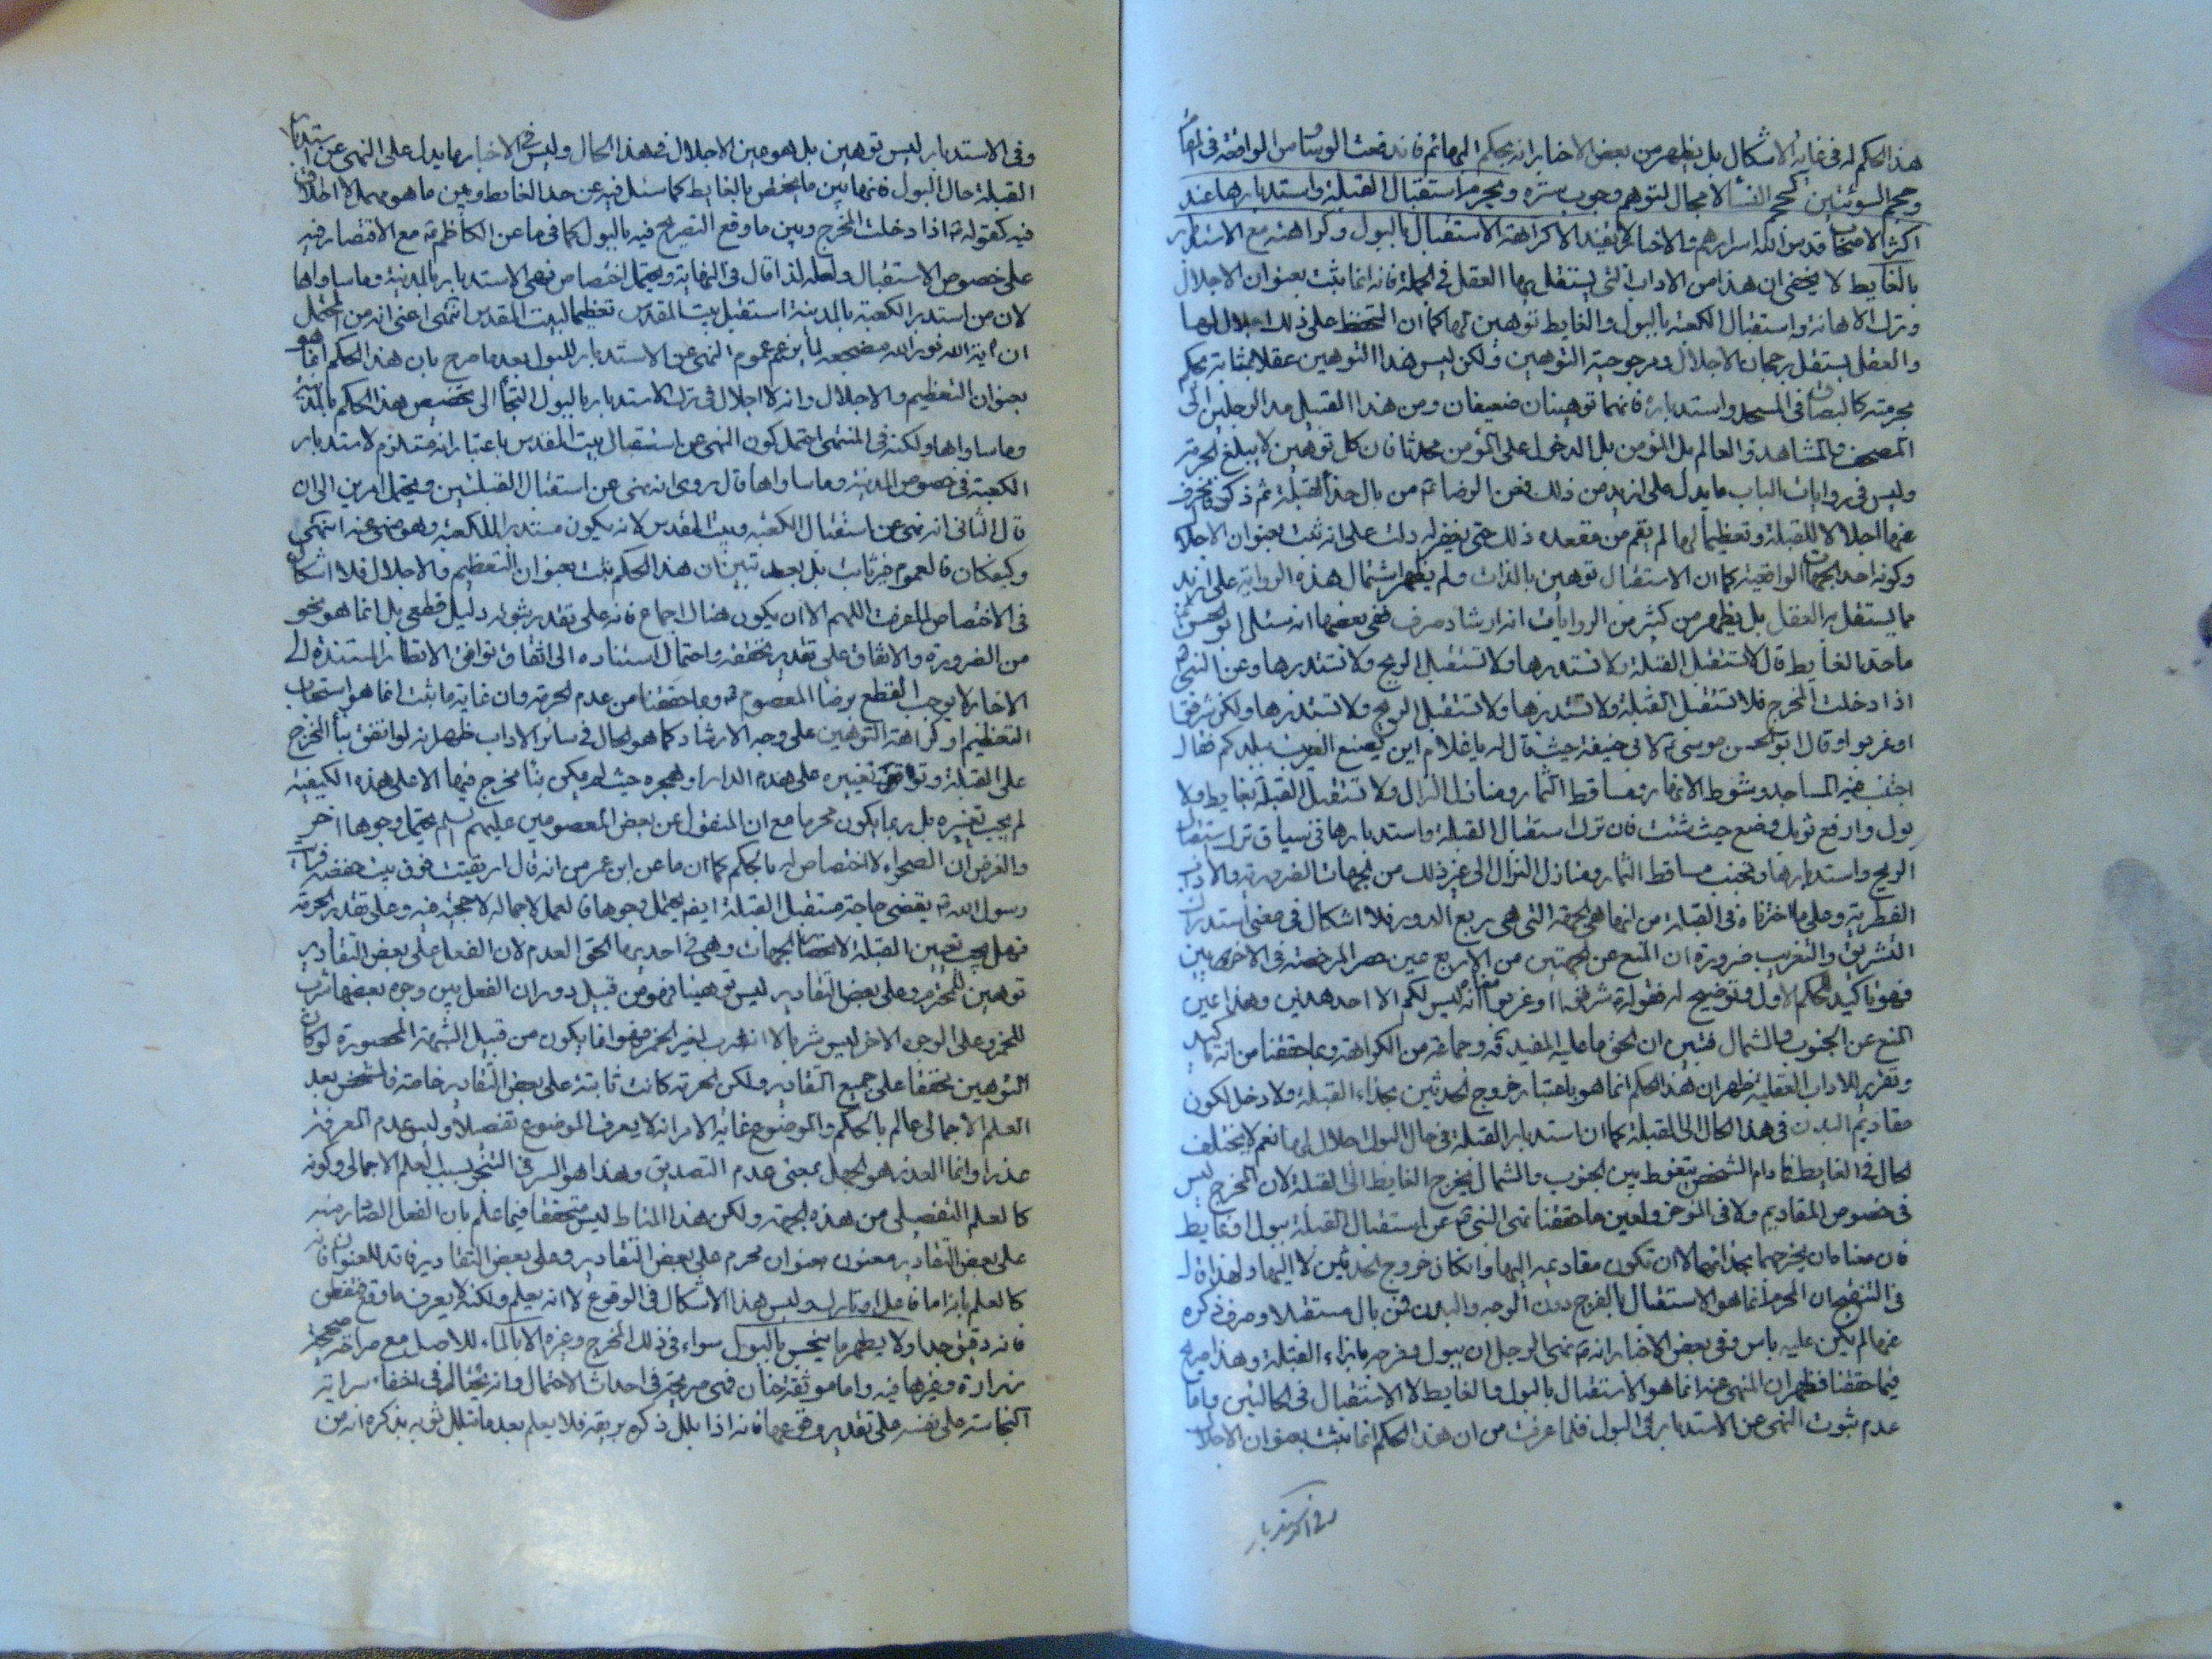 هذا الحكم له فى غاية الاشكال بل يظهر من بعض الاخبار انه بحكم البهائم فاندفعت الوساوس الواقعة فى المقام
وحجم السوئتين كحجم النساء لا مجال لتوهم وجوب ستره ويحرم استقبال القبلة واستدبارها عند
اكثر الاصحاب قدس الله اسرارهم والاخبار لا يفيد الا كراهة الاستقبال بالبول وكراهته مع الاستدبار
بالغايط لا يخفى ان هذا من الاداب التى يستقل بها العقل فى الجملة فانه انما يثبت بعنوان الاجلال
وترك الاهانة واستقبال الكعبة بالبول والغايط توهين لها كما ان التحفظ على ذلك اجلال لها
والعقل يستقل برجحان الاجلال ومرجوحية التوهين ولكن ليس هذا التوهين عقلا بمثابة يحكم
بحرمته كالبصاق فى المسجد واستدباره فانهما توهينان ضعيفان ومن هذا القبيل مد الرجلين الى
المصحف والمشاهد والعالم بل المؤمن بل الدخول على المؤمن محدثا فان كل توهين لا يبلغ الحرمة
وليس فى روايات الباب ما يدل على ازيد من ذلك فعن الرضا ع من بال حذاء القبلة ثم ذكر فانحرف
عنها اجلالا للقبلة وتعظيما لها لم يقم من مقعده ذلك حتى يغفر له دلت على انه ثبت بعنوان الاجلال
وكونه احد الجهات الواقعية كما ان الاستقبال توهين بالذات ولم يظهر اشتمال هذه الرواية على ازيد
مما يستقل به العقل بل يظهر من كثير من الروايات انه ارشاد صرف ففى بعضها انه سئل ابو الحسن ع
ما حد الغايط قال لا تستقبل القبلة ولا تستدبرها ولا تستقبل الريح ولا تستدبرها وعن النبى ص
اذا دخلت المخرج فلا تستقبل القبلة ولا تستدبرها ولا تستقبل الريح ولا تستدبرها ولكن شرقوا
او غربوا وقال ابو الحسن موسى ع لابى حنيفة حيث قال له يا غلام اين يضع الغريب ببلدكم فقال
اجتنب افنية المساجد وشطوط الانهار ومساقط الثمار ومنازل النزال ولا تستقبل القبلة بغايط ولا
بول وارفع ثوبك وضع حيث شئت فان ترك استقبال القبلة واستدبارها فى سياق ترك استقبال
الريح واستدبارها وتجنب مساقط الثمار ومنازل النزال الى غير ذلك من الجهات الضرورية والاداب
الفطرية وعلى ما اخترناه فى القبلة من انها هى الجهة التى هى ربع الدور فلا اشكال فى معنى استدراك
التشريق والتغريب ضرورة ان المنع عن جهتين من الاربع عين حصر المرخصة فى الاخريين
فهو تاكيد للحكم الاول وتوضيح له فقوله ع شرقوا او غربوا معناه انه ليس لكم الا احد هذين وهذا عين
المنع عن الجنوب والشمال فتبين ان الحق ما عليه المفيد قده وجماعة من الكراهة وبما حققنا من انه تاكيد
وتقرير للاداب العقلية ظهر ان هذا الحكم انما هو باعتبار خروج الحدثين بحذاء القبلة ولا دخل لكون
مقاديم البدن فى هذا الحال الى القبلة كما ان استدبار القبلة فى حال البول اجلال لها نعم لا يختلف
الحال فى الغايط فما دام الشخص يتغوط بين الجنوب والشمال يخرج الغايط الى القبلة لان المخرج ليس
فى خصوص المقاديم ولا فى المؤخر ولعين ما حققنا نهى النبى ص عن استقبال القبلة ببول او غايط
فان معناه ان يخرجهما بحذائها لا ان تكون مقاديمه اليها وان كان خروج الحدثين لا اليها ولهذا قال
فى التنقيح ان المحرم انما هو الاستقبال بالفرج دون الوجه والبدن فمن بال مستقبلا وحرف ذكره
عنها لم يكن عليه باس وفى بعض الاخبار انه ع نهى الرجل ان يبول وفرجه بازاء القبلة وهذا صريح
فيما حققنا فظهر ان المنهى عنه انما هو الاستقبال بالبول والغايط لا الاستقبال فى الحالتين واما
عدم ثبوت النهى عن الاستدبار فى البول فلما عرفت من ان هذا الحكم انما يثبت بعنوان الاجلال
وفى الاستدبار
وفى الاستدبار ليس توهين بل هو عين الاجلال فى هذا الحال وليس فى الاخبار ما يدل على النهى عن استدبار
القبلة حال البول فانها بين ما يختص بالغايط كما سئل فيه عن حد الغايط وبين ما هو مهمل لا اطلاق
فيه كقوله ع اذا دخلت المخرج وبين ما وقع التصريح فيه بالبول كما فى ما عن الكاظم ع مع الاقتصار فيه
على خصوص الاستقبال ولعله لذا قال فى النهاية ويحتمل اختصاص نهى الاستدبار بالمدينة وما ساواها
لان من استدبر الكعبة بالمدينة استقبل بيت المقدس تعظيما لبيت المقدس انتهى اعنى انه من المحتمل
ان اية الله نور الله مضجعه لما بزعم عموم النهى عن الاستدبار للبول بعد ما صرح بان هذا الحكم انما هو
بعنوان التعظيم والاجلال وانه لا اجلال فى ترك الاستدبار بالبول التجأ الى تخصيص هذا الحكم بالمدينة
وما ساواها ولكنه فى المنتهى احتمل كون النهى عن استقبال بيت المقدس باعتبار انه مستلزم لاستدبار
الكعبة فى خصوص المدينة وما ساواها قال روى انه نهى عن استقبال القبلتين ويحتمل امرين الى ان
قال الثانى انه نهى عن استقبال الكعبة وبيت المقدس لانه يكون مستدبرا للكعبة وهو منهى عنه انتهى
وكيف كان فالعموم غير ثابت بل بعد تبين ان هذا الحكم يثبت بعنوان التعظيم والاجلال فلا اشكال
فى الاختصاص لما عرفت اللهم الا ان يكون هناك اجماع فانه على تقدير ثبوته دليل قطعى بل انما هو نحو
من الضرورة والاتفاق على تقدير تحققه واحتمال استناده الى اتفاق توافق الانظار المستندة الى
الاخبار لا يوجب القطع برضا المعصوم ع ومما حققنا من عدم الحرمة وان غاية ما ثبت انما هو استحباب
التعظيم او كراهة التوهين على وجه الارشاد كما هو الحال فى سائر الاداب ظهر انه لو اتفق بناء المخرج
على القبلة وتوقف تغييره على هدم الدار او هجره حيث لم يكن بناء مخرج فيها الا على هذه الكيفية
لم يجب تغييره بل ربما يكون محرما مع ان المنقول عن بعض المعصومين عليهم السلم يحتمل وجوها اخر
والغرض ان الصحراء لا اختصاص له بالحكم كما ان ما عن ابن عمر من انه قال ارتقيت فوق بيت حفصة فرايت
رسول الله ص يقضى حاجته مستقبل القبلة ايضا يحتمل وجوها فالعمل لاجماله لا حجية فيه وعلى تقدير الحرمة
فهل يجب تعيين القبلة لانحصار الجهات وهى فى احديها الحق العدم لان الفعل على بعض التقادير
توهين للمحترم وعلى بعض التقادير ليس توهينا فهو من قبيل دوران الفعل بين وجوه بعضها شرب
للخمر وعلى الوجه الاخر ليس شربا الا لغير الخمر فهو انما يكون من قبيل الشبهة المحصورة لو كان
التوهين محققا على جميع التقادير ولكن الحرمة كانت ثابتة على بعض التقادير خاصة فالشخص بعد
العلم الاجمالى عالم بالحكم والموضوع غاية الامر انه لا يعرف الموضوع تفصيلا وليس عدم المعرفة
عذرا وانما العذر هو الجهل بمعنى عدم التصديق وهذا هو السر فى التنجز بسبب العلم الاجمالى وكونه
كالعلم التفصيلى من هذه الجهة ولكن هذا المناط ليس متحققا فيما علم بان الفعل الصادر منه
على بعض التقادير معنون بعنوان محرم على بعض التقادير وعلى بعض التقادير فاقد للعنوان فانه
كالعلم بانه اما فاعل او تارك وليس هذا الاشكال فى الوقوع لا انه يعلم ولكنه لا يعرف ما وقع فتفطن
فانه دقيق جدا ولا يطهر ما ينجس بالبول سواء فى ذلك المخرج وغيره الا بالماء للاصل مع صراحة صحيحة
زرارة وغيرها فيه واما موثقة حنان فهى صريحة فى احداث الاحتمال وانه يحتال فى اخفاء سراية
النجاسة على نفسه على تقدير وقوعها فانه اذا بلل ذكره بريقه فلا يعلم بعد ما تبلل ثوبه بذكره انه من